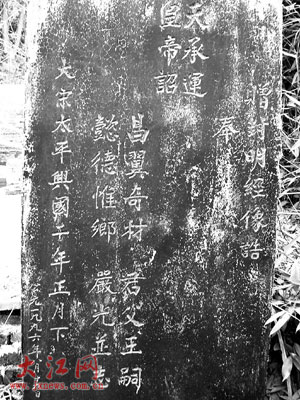 贈封明經像誥
奉
天承運
皇帝詔
昌翼奇材 君父王嗣
懿德惟鄉 嚴光並志
大宋太平興國年正月下
一九九六年
大江网
www.jxnews.com.cn